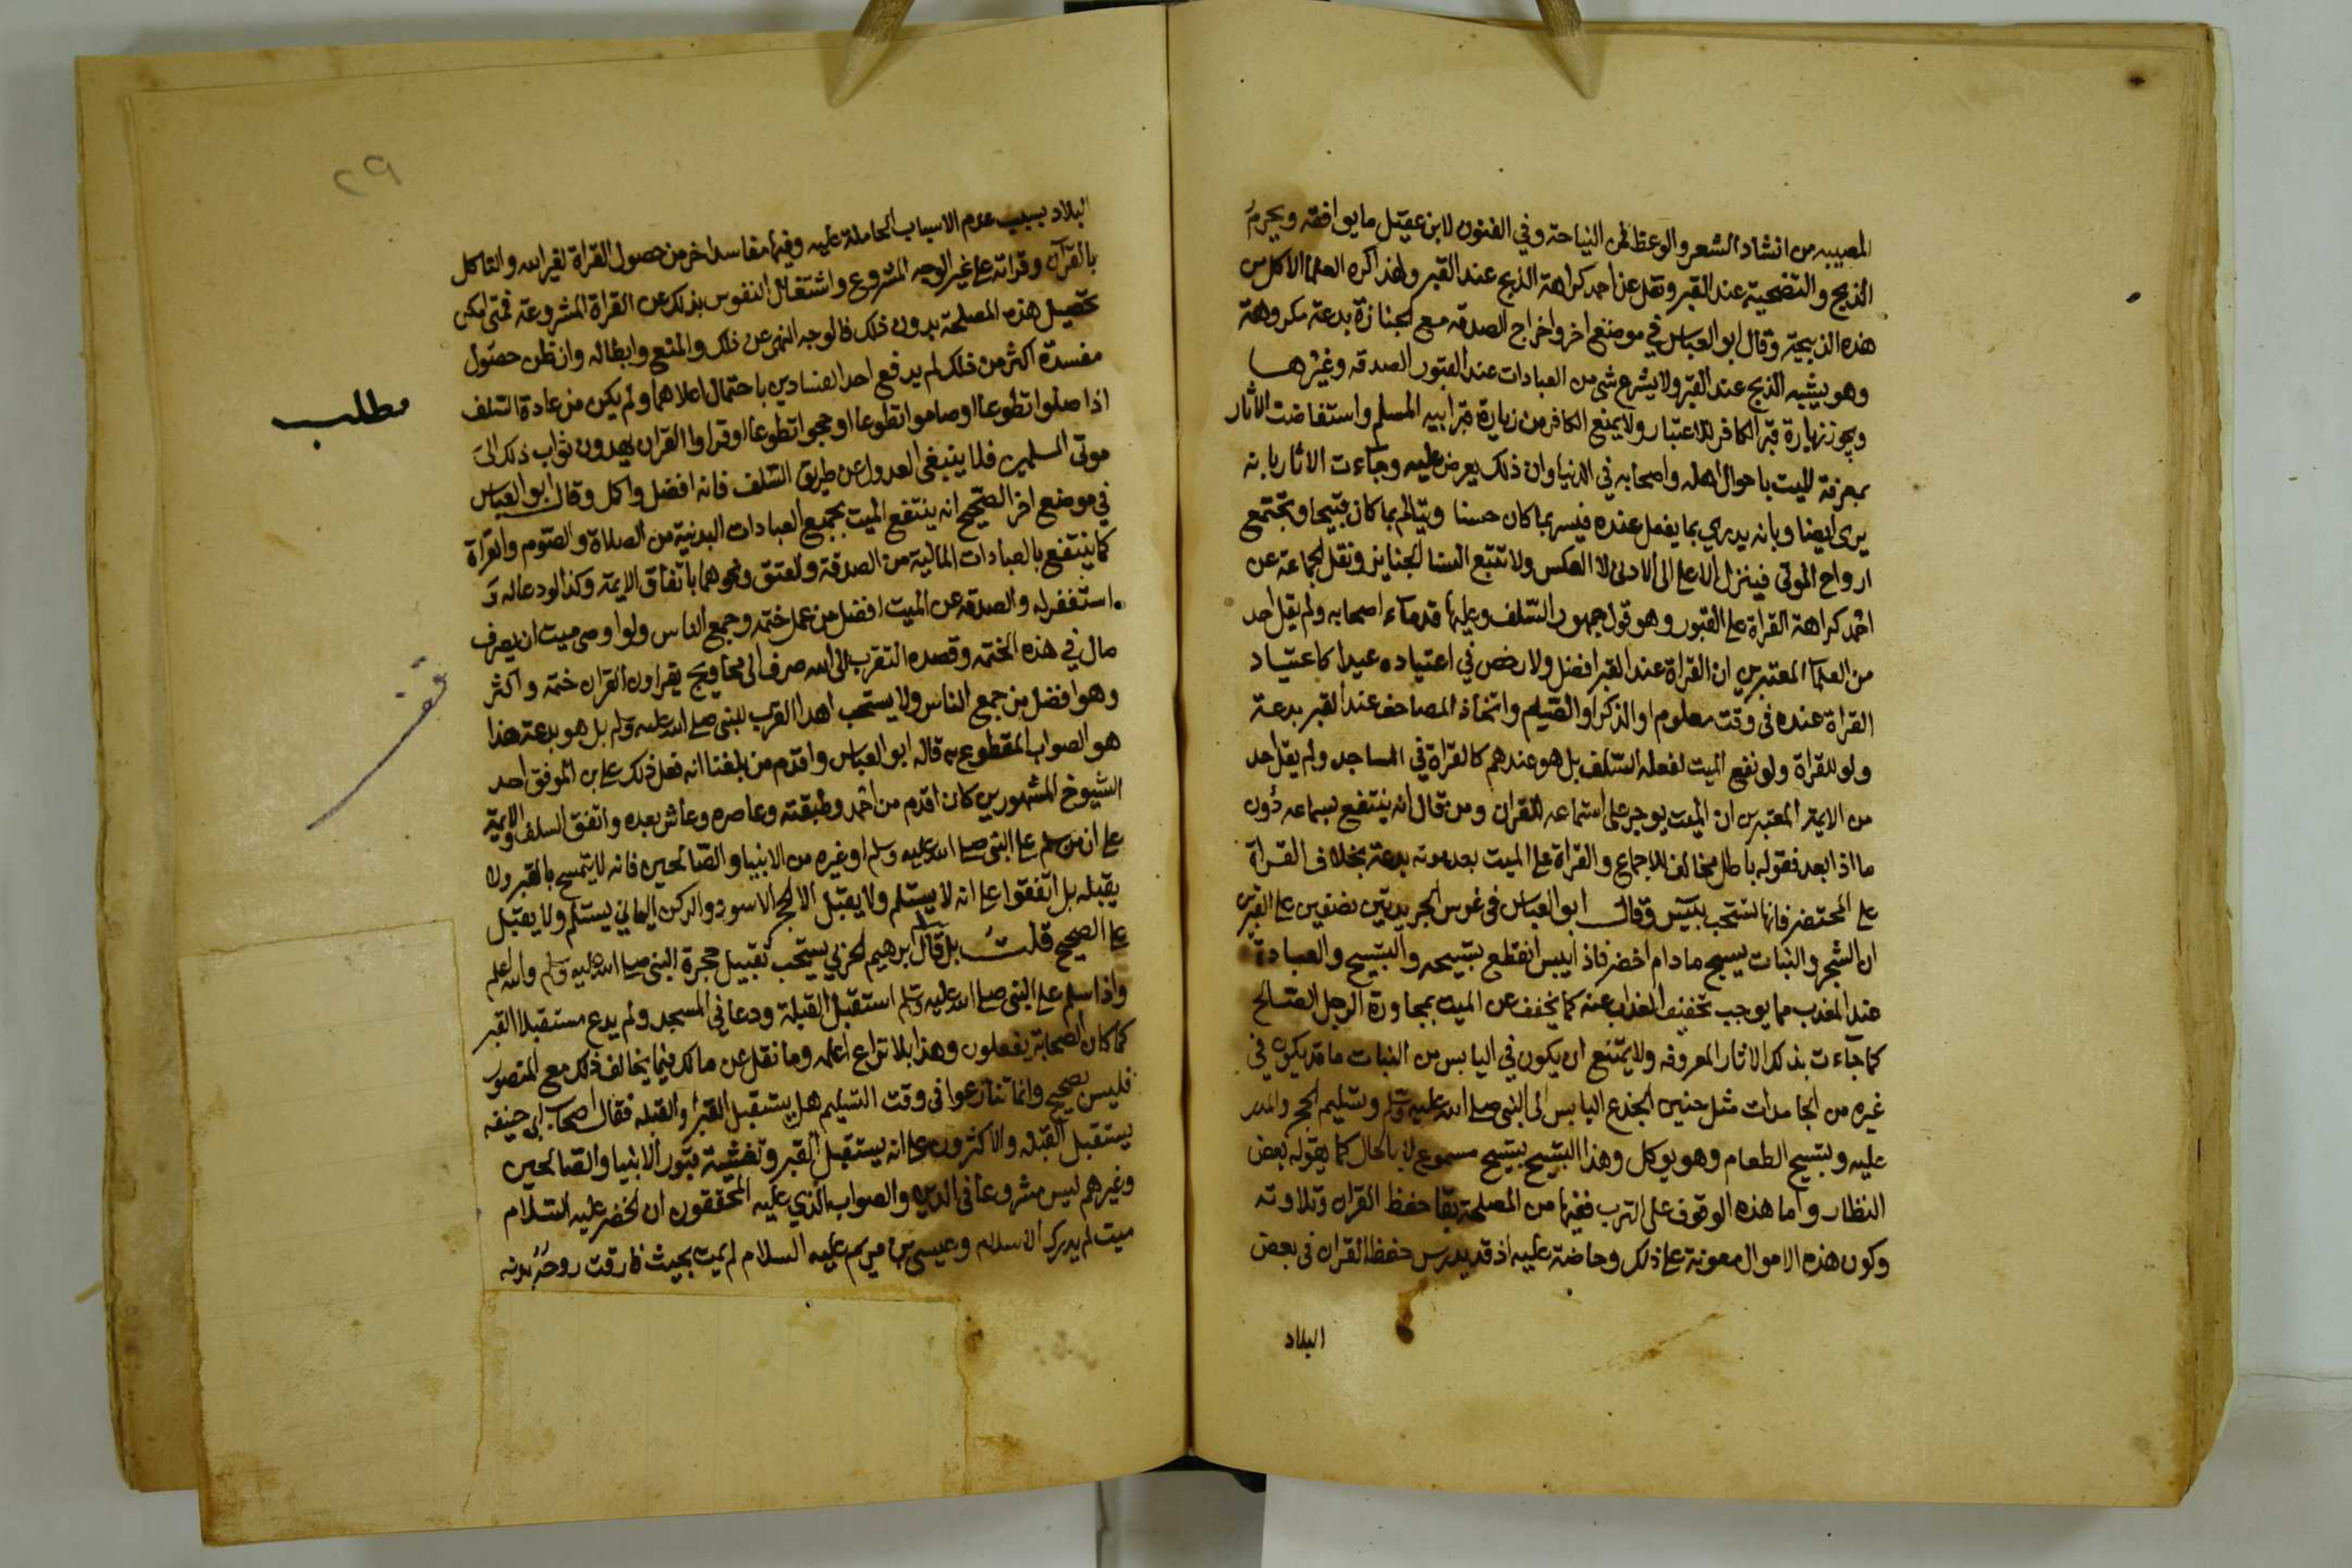 المصيبه من انشاد الشعر والوعظ فمن النياحة وفي الفنون لابن عقيل ما يوافقه ويحرم
الذبح والتضحية عند القبر ونقل عن احمد كراهة الذبح عند القبر ولهذا كره العلما الاكل من
هذه الذبيحة وقال ابو العباس في موضع اخر واخراج الصدقه مع الجنازة بدعة مكروهة
وهو يشبه الذبح عند القبر ولا يشرع شي من العبادات عند القبور الصدقه وغيرها
ويجوز زيارة قبر الكافر للاعتبار ولا يمنع الكافر من زيارة قبر ابيه المسلم واستفاضت الاثار
بمعرفة الميت باحوال اهله واصحابه في الدنيا وان ذلك يعرض عليه وجآءت الاثار بانه
يرى ايضا وبانه يدري بما يفعل عنده فيسر بما كان حسنا ويتالم بما كان قبيحا وتجتمع
ارواح الموتى فينزل الاعلى الى الادنى لا العكس ولا تتبع النسا الجنايز ونقل الجماعة عن
احمد كراهة القراة على القبور وهو قول جمهور السلف وعليها قدمآء اصحابه ولم يقل احد
من العلمآ المعتبرين ان القراة عند القبر افضل ولا رخص في اعتياده عيدا كاعتياد
القراة عنده في وقت معلوم او الذكر او القيام واتخاذ المصاحف عند القبر بدعة
ولو للقراة ولو نفع الميت لفعله السلف بل هو عندهم كالقراة في المساجد ولم يقل احد
من الايمة المعتبرين ان الميت يوجر على استماعه للقران ومن قال انه ينتفع بسماعه دون
ما اذا ابعد فقوله باطل مخالف للاجماع والقراة على الميت بعد موته بدعة بخلاف القراة
على المحتضر فانها تستحب بيس وقال ابو العباس في غرس الجريدتين نصفين على القبرين
ان الشجر والنبات يسبح مادام اخضر فاذا يبس انقطع تسبيحه والتسبيح والعبادة
عند المعذب مما يوجب تخفيف العذاب عنه كما يخفف عن الميت بمجاورة الرجل الصالح
كما جآءت بذلك الاثار المعروفه ولا يمتنع ان يكون في اليابس من النبات ما قد يكون في
غيره من الجامدات مثل حنين الجذع اليابس الى النبي صلى الله عليه وسلم وتسليم الحجر والمدر
عليه وتسبيح الطعام وهو يوكل وهذا التسبيح تسبيح مسموع لا بالحال كما يقوله بعض
النظار واما هذه الوقوف على الترب ففيها من المصلحة بقا حفظ القران وتلاوته
وكون هذه الاموال معونة على ذلك وحاضة عليه اذ قد يدرس حفظ القران في بعض
البلاد
٢٩
البلاد بسبب عدم الاسباب الحاملة عليه وفيها مفاسد اخر من حصول القراة لغير الله والتاكل
بالقرآن وقراته على غير الوجه المشروع واشتغال النفوس بذلك عن القراة المشروعة فمتى امكن
تحصيل هذه المصلحة بدون ذلك فالوجه النهي عن ذلك والمنع وابطاله وان ظن حصول
مفسدة اكثر من ذلك لم يدفع احد الفسادين باحتمال اعلاهما ولم يكن من عادة السلف
مطلب
اذا صلوا تطوعا او صاموا تطوعا او حجوا تطوعا او قراوا القران يهدون ثواب ذلك الى
موتى المسلمين فلا ينبغي العدول عن طريق السلف فانه افضل واكمل وقال ابو العباس
في موضع اخر الصحيح انه ينتفع الميت بجميع العبادات البدنية من الصلاة والصوم والقرآة
كما ينتفع بالعبادات المالية من الصدقة والعتق ونحوهما باتفاق الايمة وكذا لو دعا له و
استغفر له والصدقه عن الميت افضل من عمل ختمه وجمع الناس ولو اوصى ميت ان يصرف
مال في هذه الختمه وقصده التقرب الى الله صرف الى محاويج يقراون القران ختمه واكثر
قف
وهو افضل من جمع الناس ولا يستحب اهدا القرب للنبي صلى الله عليه وسلم بل هو بدعة هذا
هو الصواب المقطوع به قاله ابو العباس واقدم من بلغنا انه فعل ذلك علي بن الموفق احد
الشيوخ المشهورين كان اقدم من احمد وطبقته وعاصره وعاش بعده واتفق السلف والايمة
على ان من سلم على النبي صلى الله عليه وسلم او غيره من الانبيا والصالحين فانه لا يتمسح بالقبر ولا
يقبله بل اتفقوا على انه لا يستلم ولا يقبل الا الحجر الاسود والركن اليماني يستلم ولا يقبل
على الصحيح قلت بل قال ابرهيم الحربي يستحب تقبيل حجرة النبي صلى الله عليه وسلم والله اعلم
واذا سلم على النبي صلى الله عليه وسلم استقبل القبلة ودعا في المسجد ولم يدع مستقبلا القبر
كما كان الصحابة يفعلون وهذا بلا نزاع اعلمه وما نقل عن مالك فيما يخالف ذلك مع المنصور
فليس بصحيح وانما تنازعوا في وقت التسليم هل يستقبل القبر او القبله فقال اصحاب ابي حنيفه
يستقبل القبله والاكثرون على انه يستقبل القبر وتغشية قبور الانبيا والصالحين
وغيرهم ليس مشروعا في الدين والصواب الذي عليه المحققون ان الخضر عليه السلام
ميت لم يدرك الاسلام وعيسى بن مريم عليه السلام لم يمت بحيث فارقت روحه بدنه